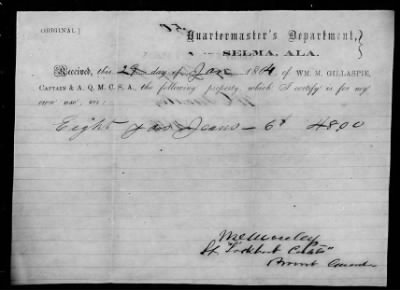 (ORIGINAL.)
Quartermaster's Department,
SELMA, ALA.
Received, this 29 day of Jan 1864 of WM. M. GILLASPIE,
CAPTAIN & A. Q. M. C. S. A., the following property which I certify is for my
own use, viz:
Eight yds Jeans - 6 48.00
Lt